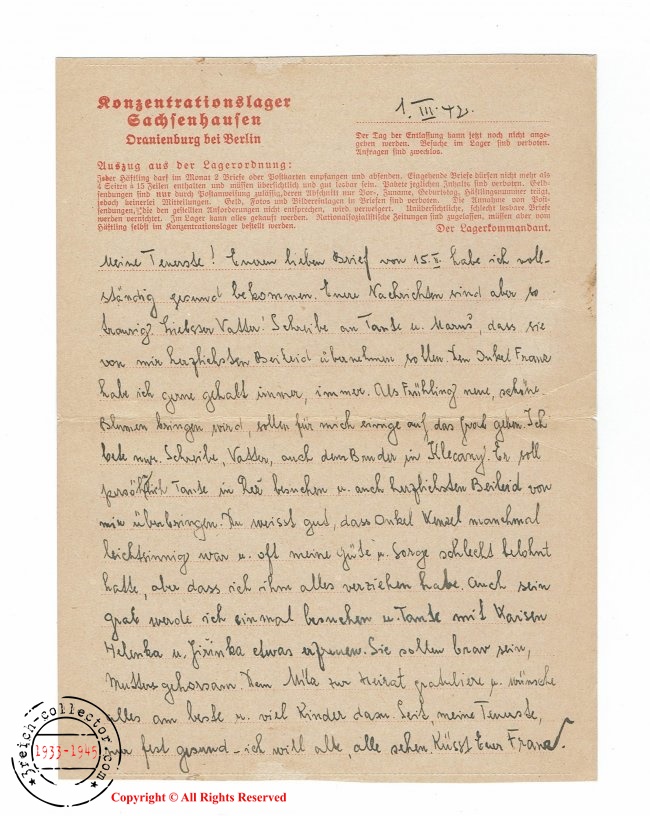 Konzentrationslager
Sachsenhausen
Oranienburg bei Berlin
1. III. 42.
Der Tag der Entlassung kann jetzt noch nicht ange-
geben werden. Besuche im Lager sind verboten.
Anfragen sind zwecklos.
Auszug aus der Lagerordnung:
Jeder Häftling darf im Monat 2 Briefe oder Postkarten empfangen und absenden. Eingehende Briefe dürfen nicht mehr als
4 Seiten à 15 Zeilen enthalten und müssen übersichtlich und gut lesbar sein. Pakete jeglichen Inhalts sind verboten. Geld-
sendungen sind nur durch Postanweisung zulässig, deren Abschnitt nur Vor-, Zuname, Geburtstag, Häftlingsnummer trägt,
jedoch keinerlei Mitteilungen. Geld, Fotos und Bildereinlagen in Briefen sind verboten. Die Annahme von Post-
sendungen, die den gestellten Anforderungen nicht entsprechen, wird verweigert. Unübersichtliche, schlecht lesbare Briefe
werden vernichtet. Im Lager kann alles gekauft werden. Nationalsozialistische Zeitungen sind zugelassen, müssen aber vom
Häftling selbst im Konzentrationslager bestellt werden.
Der Lagerkommandant.
Meine Teuerste! Eueren lieben Brief von 15. II. habe ich voll-
ständig gesund bekommen. Euere Nachrichten sind aber so
traurig. Liebster Vatter! Schreibe an Tante u. dass sie
von mir herzlichsten Beileid übernehmen sollen. Den Onkel Franz
habe ich gerne gehalt immer, immer. Als Frühling neue, schöne
Blumen bringen wird, sollen für mich einige auf das Grab geben. Ich
bete nur. Schreibe, Vatter, auch dem Bruder in Klecany. Er soll
persönlich Tante in besuchen u. auch herzlichsten Beileid von
mir überbringen. Du weisst gut, dass Onkel Wenzel manchmal
leichtsinnig war u. oft meine Güte u. Sorge schlecht belohnt
hatte, aber dass ich ihm alles verziehen habe. Auch sein
grab werde ich einmal besuchen u. Tante mit Waisen
Helenka u. Jiřinka etwas erfreuen. Sie sollen brav sein,
Mutter gehorsam. Dem Mila zur Heirat gratuliere u. wünsche
alles am beste u. viel Kinder dazu. Seit, meine Teuerste,
nur fest gesund - ich will alle, alle sehen. Küsst Euer Franz.
3reich-collector.com
1933-1945
Copyright © All Rights Reserved